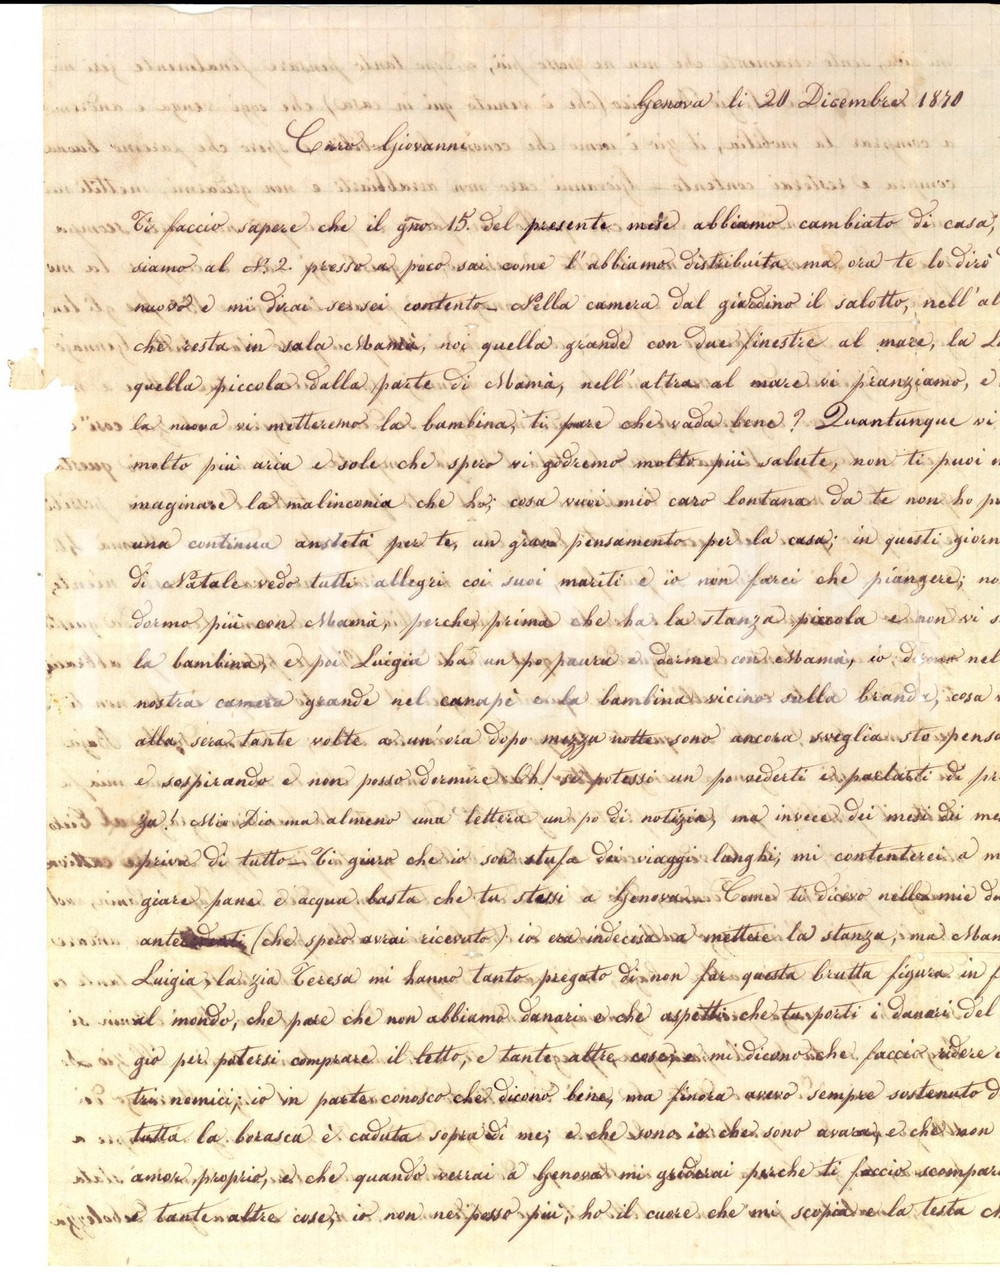 Genova li 20 Dicembre 1870
Caro Giovanni
Ti faccio sapere che il gno 15. del presente mese abbiamo cambiato di casa,
siamo al N. 2. presso a poco sai come l'abbiamo distribuita ma ora te lo dirò
nuovo e mi dirai se sei contento_ Nella camera dal giardino il salotto, nell'al
che resta in sala Mamà, noi quella grande con due finestre al mare, la L
quella piccola dalla parte di Mamà, nell'altra al mare vi pranziamo, e
la nuova vi metteremo la bambina, ti pare che vada bene? Quantunque vi
molto più aria e sole che spero vi godremo molto più salute, non ti puoi
maginare la malinconia che ho; cosa vuoi mio caro lontana da te non ho
una continua ansietà per te, un gran pensamento per la casa; in questi giorn
di Natale vedo tutti allegri coi suoi mariti e io non farei che piangere; no
dormo più con Mamà, perche prima che ha la stanza piccola e non vi s
la bambina, e poi Luigia ha un po paura e dorme con Mamà, io dormo nel
nostra camera grande nel canapè e la bambina vicino sulla branda, cosa
alla sera tante volte a un'ora dopo mezza notte sono ancora sveglia sto pensa
e sospirando e non posso dormire Oh! se potessi un po vederti e parlarti di pr
za! Mio Dio ma almeno una lettera un po di notizia, ma invece dei mesi dei me
priva di tutto_ Ti giuro che io son stufa dei viaggi langhi; mi contenterei a m
giare pane e acqua basta che tu stessi a Genova_ Come ti dicevo nelle mie d
antecedenti (che spero avrai ricevuto) io era indecisa a mettere la stanza, ma Mam
Luigia, la zia Teresa mi hanno tanto pregato di non far questa brutta figura in f
al mondo, che pare che non abbiamo danari e che aspetti che tu porti i danari del
gio per potersi comprare il letto, e tante altre cose, e mi dicono che faccio ridere
tri nemici; io in parte conosco che dicono bene, ma finora avevo sempre sostenuto d
tutta la borasca è caduta sopra di me; e che sono io che sono avara, e che non
amor proprio, e che quando verrai a Genova mi griderai perche ti faccio scompari
e tante altre cose, io non ne posso più; ho il cuore che mi scopia e la testa ch